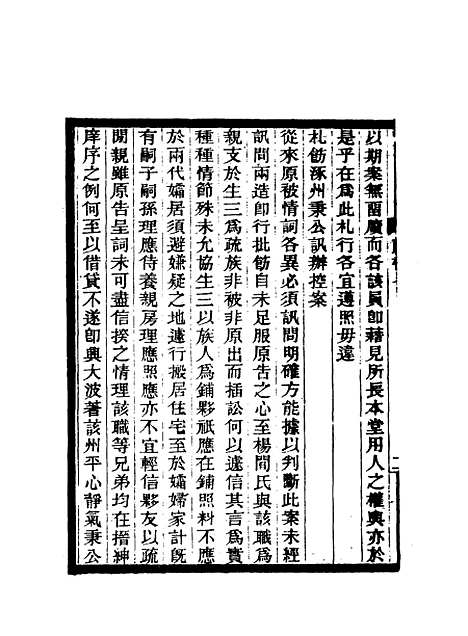 以期案無留牘而各該員卽藉見所長本堂用人之權輿亦於
是乎在爲此札行各宜遵照毋違
札飭涿州秉公訊辦控案
從來原被情詞各異必須訊問明確方能據以判斷此案未經
訊問兩造卽行批飭自未足服原告之心至楊間氏與該職爲
親支於生三爲疏族非被非原出而插訟何以遽信其言爲實
種種情節殊未允協生三以族人爲鋪夥祇應在鋪照料不應
於兩代孀居須避嫌疑之地遽行搬居住宅至於孀婦家計旣
有嗣子嗣孫理應侍養親房理應照應亦不宜輕信夥友以疏
閒親雖原告呈詞未可盡信揆之情理該職等兄弟均在搢紳
庠序之例何至以借貸不遂卽興大波著該州平心靜氣秉公